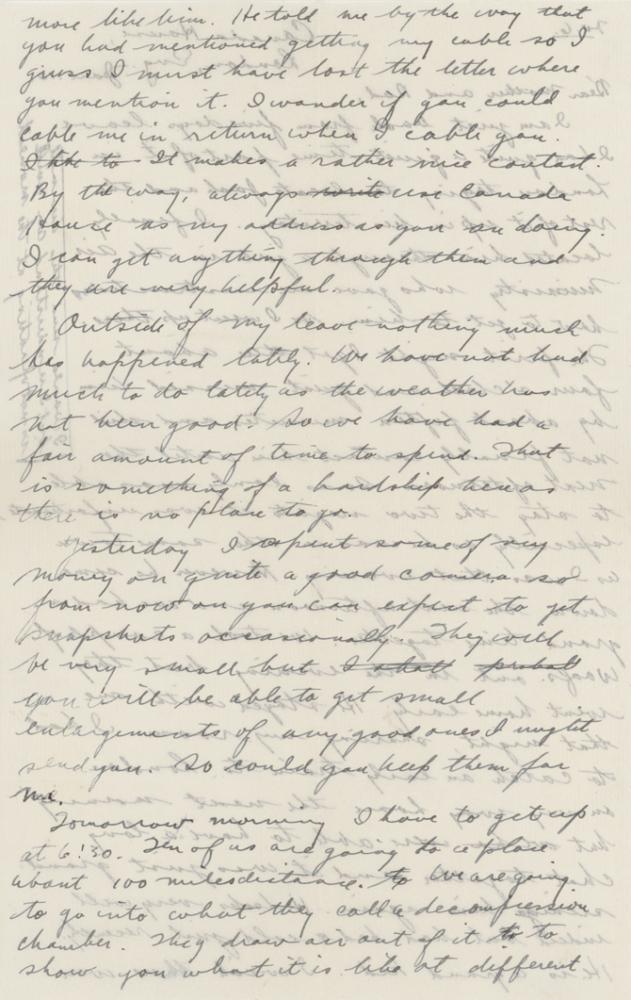 more like him. He told me by the way that
you had mentioned getting my cable so I
guess I must have lost the letter where
you mention it. I wander if you could
cable me in return when I cable you.
I like to It makes a rather nice contact.
By the way, always write use Canada
House as my address as you are doing.
I can get anything through them and
they are very helpful.
Outside of my leave nothing much
has happened lately. We have not had
much to do lately as the weather has
not been good. So we have had a
fair amount of time to spend. That
is something of a hardship here as
there is no place to go.
Yesterday I spent some of my
money on quite a good camera so
from now on you can expect to get
snapshots occasionally. They will
be very small but I shall probabl
you will be able to get small
enlargements of any good ones I might
send you. So could you keep them for
me.
Tomorrow morning I have to get up
at 6:30. Ten of us are going to a place
about 100 miles distance. to We are going
to go into what they call a decompression
chamber. They draw air out of it to to
show you what it is like at different